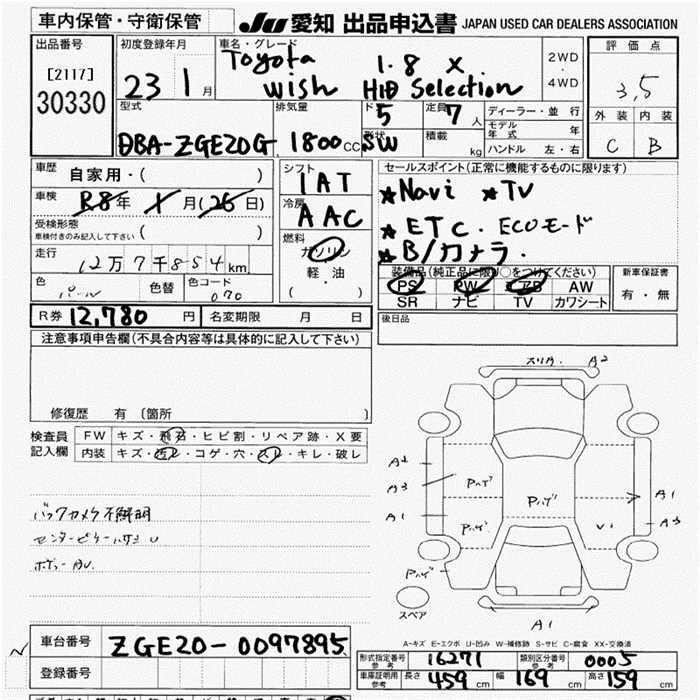 車内保管・守衛保管
JU 愛知 出品申込書 JAPAN USED CAR DEALERS ASSOCIATION
出品番号
[2117]
30330
初度登録年月
23 1 月
車名・グレード
Toyota 1.8 X
wish HID Selection
2WD
・
4WD
評価点
3,5
外装 内装
C B
型式
DBA-ZGE20G
排気量
1800 CC
ド 5
形状 SW
定員 7 人
積載 kg
ディーラー・並行
モデル年式 年
ハンドル 左・右
車歴 自家用・( )
車検 R8年 X月(26日)
受検形態
車検付きのみ記入して下さい ( )
走行 12万7千854km
色 パール 色替 色コード 070
シフト
1AT
冷房
AAC
燃料
ガソリン
軽油
( ・ )
セールスポイント(正常に機能するものに限ります)
★Navi ★TV
★ETC. ECOモード
★B/カメラ.
装備品(純正品に限り○をつけてください)
PS PW AB AW
SR ナビ TV カワシート
新車保証書
有・無
R券 12,780 円 名変期限 月 日
後日品
注意事項申告欄(不具合内容等は具体的に記入して下さい)
修復歴 有 〔箇所 〕
検査員
記入欄
FW キズ・飛石・ヒビ割・リペア跡・X要
内装 キズ・汚レ・コゲ・穴・スレ・キレ・破レ
バックカメラ不鮮明
スリ用. A2
A2
A3
A1
Pハゲ
Pハゲ
Pハゲ
Pハゲ
A1
A3
V1
A1
スペア
A-キズ E-エクボ U-凹み W-補修跡 S-サビ C-腐食 XX-交換済
車台番号 ZGE20-0097895
登録番号
形式指定番号 参考 16271
類別区分番号 参考 0005
車庫証明用 参考 長さ 459 cm 幅 169 cm 高さ 159 cm